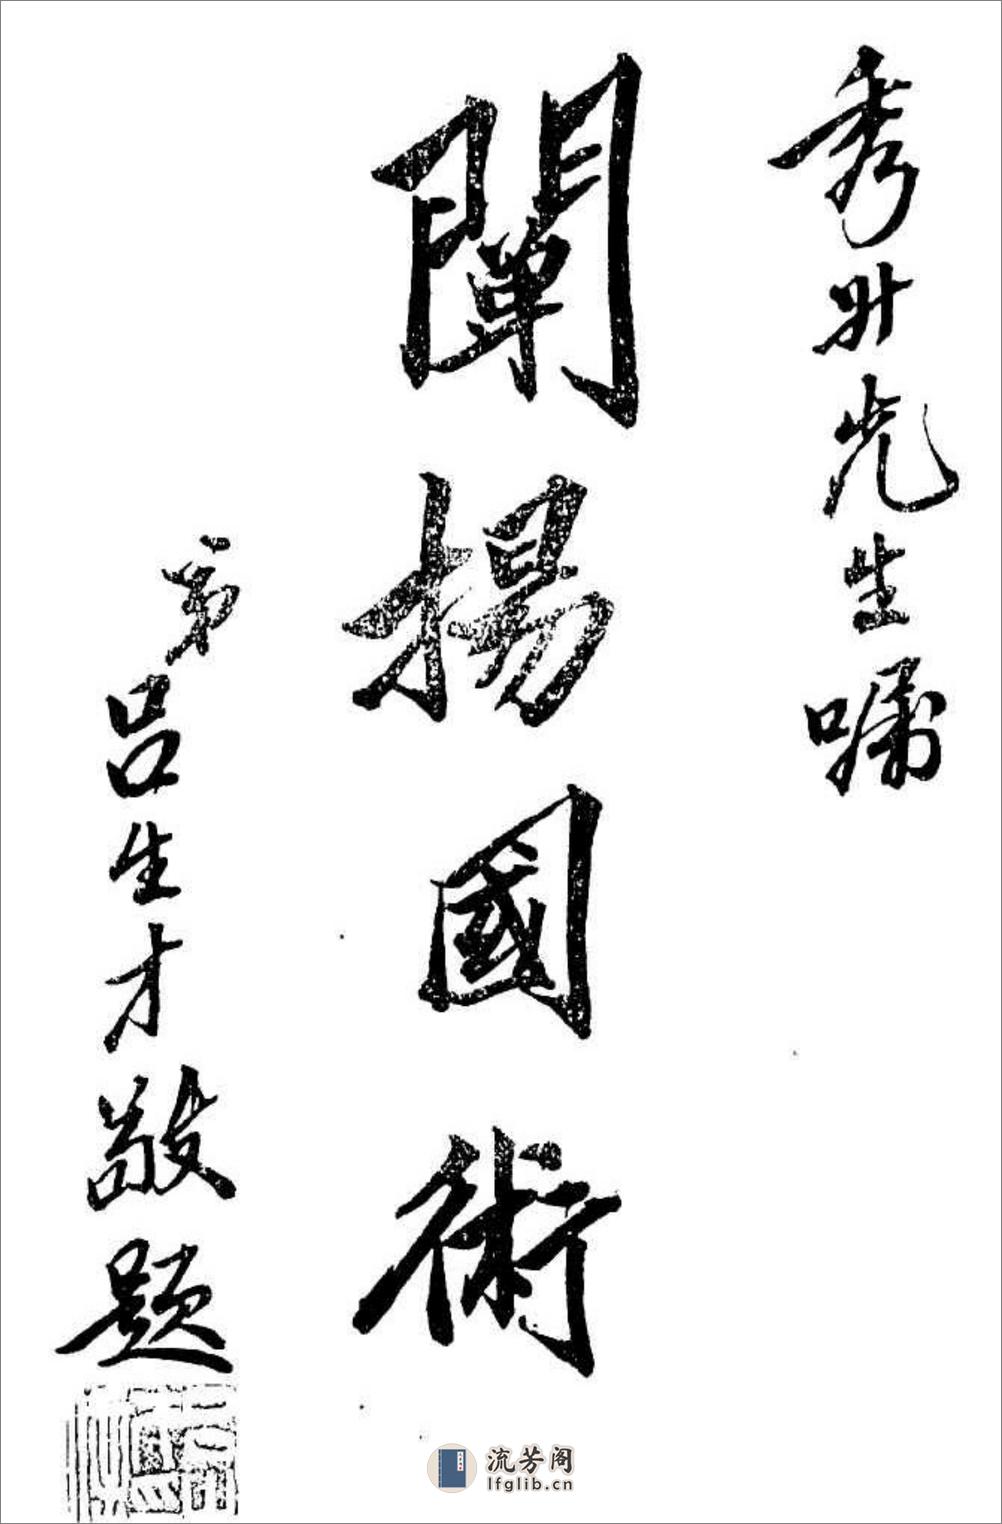 秀先生嘱
闡揚國術
弟呂生才敬題
流芳阁
lfglib.cn